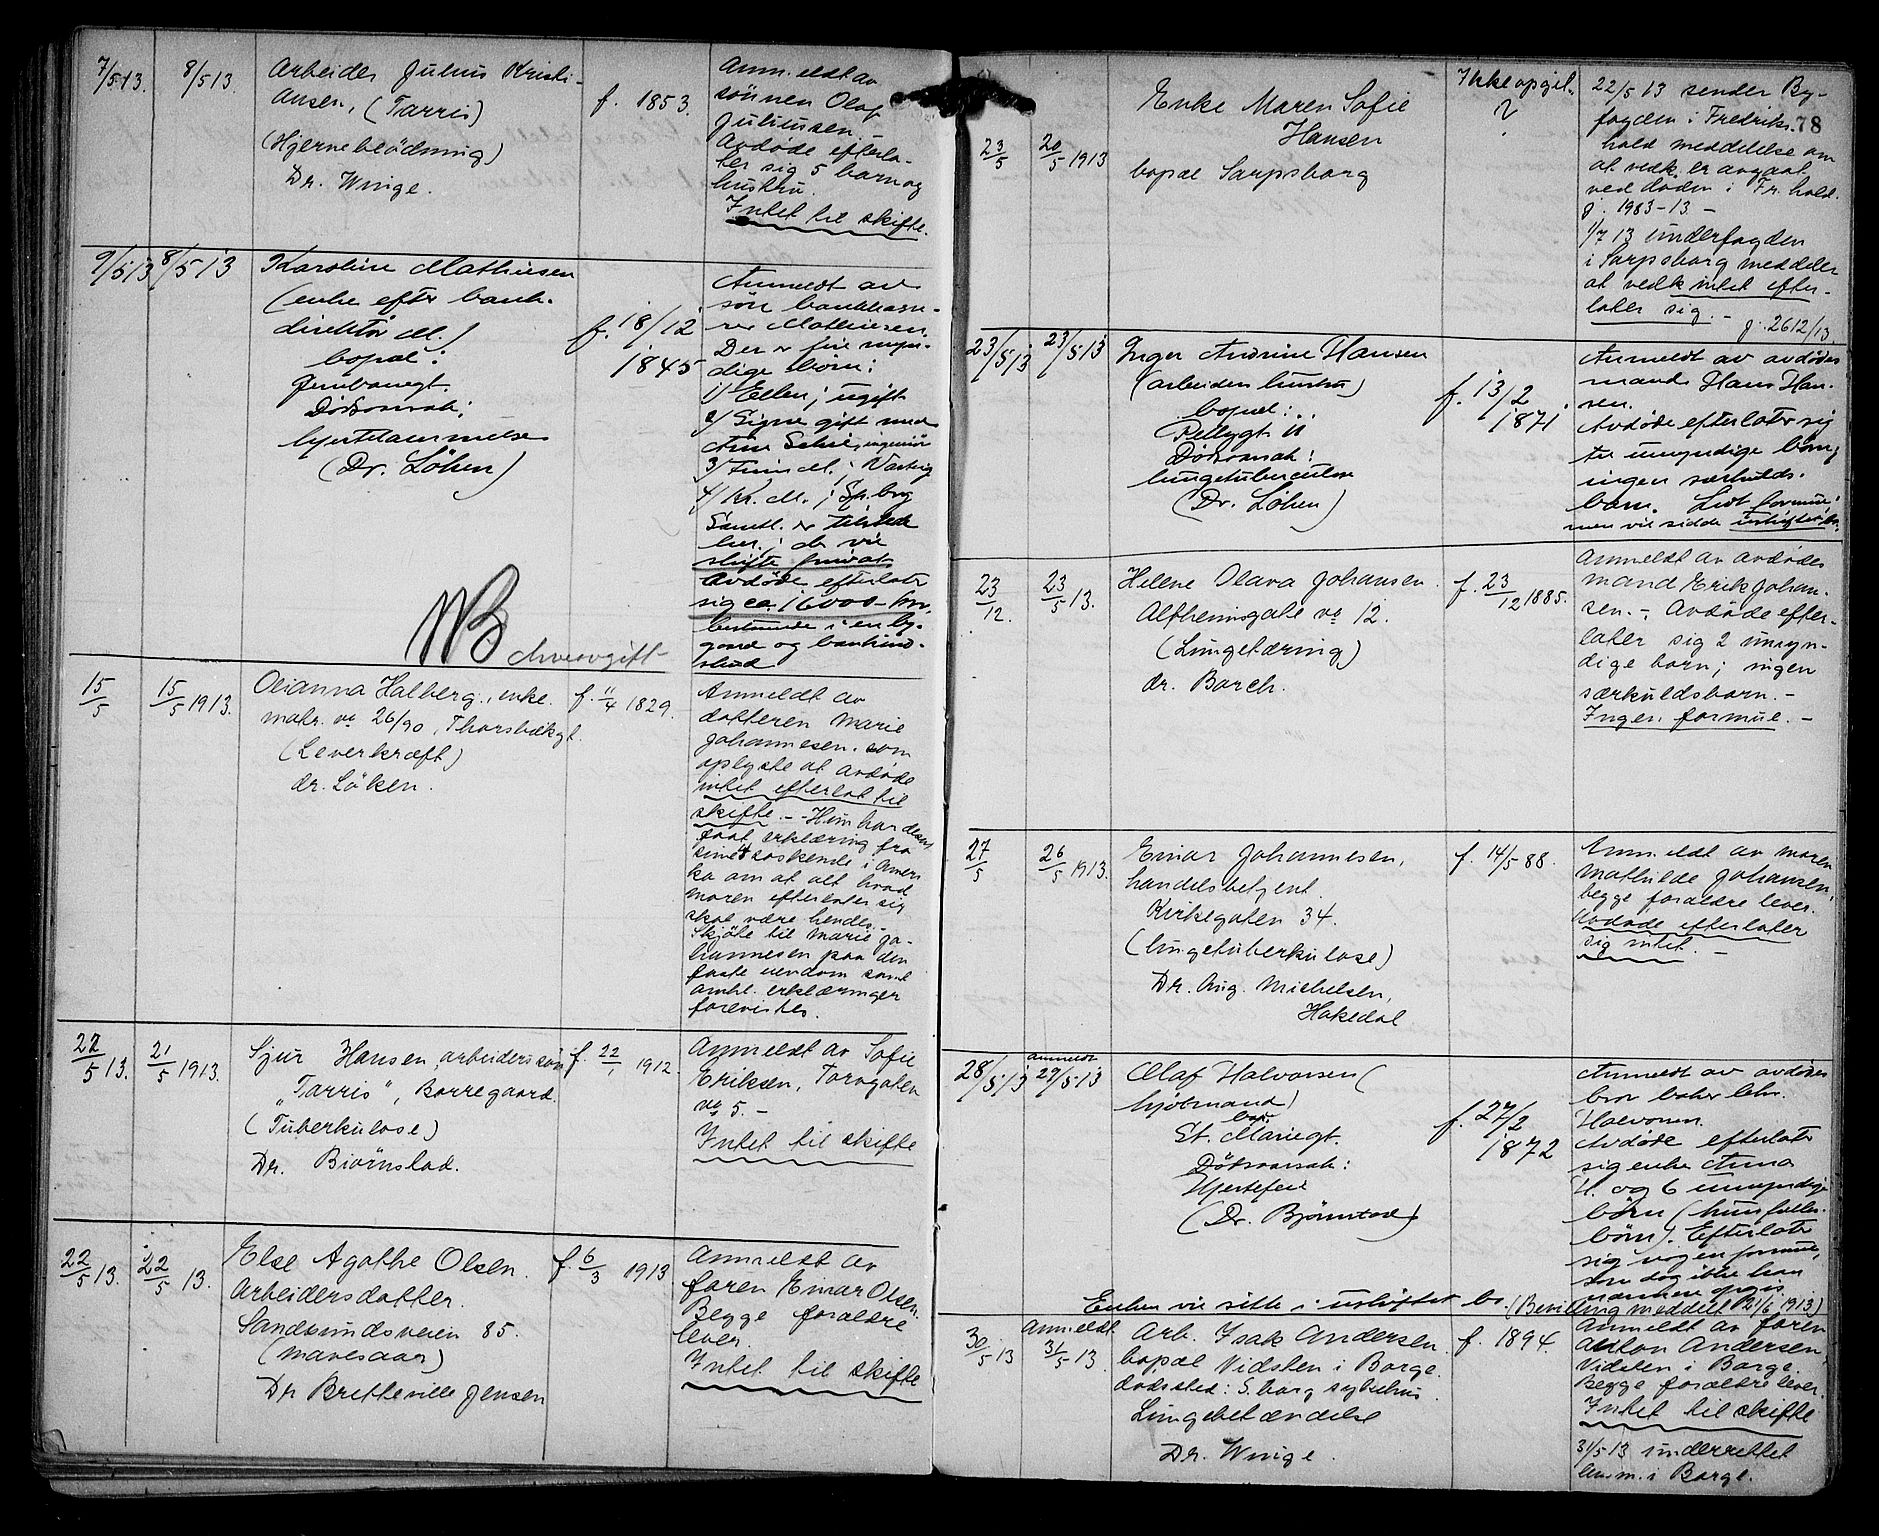 7/5 13.
8/5 13
Arbeider Julius Kristi-
ansen, (Tarris)
(Hjerneblödning)
Dr. Winge.
f. 1853.
Anmeldt av
sönnen Olaf
Juliussen. -
Avdøde efterla-
ter sig 5 barn og
hustru.
Intet til skifte.
9/5 13
8/5 13
Karoline Mathiesen
(enke efter bank-
direktör M.)
bopæl:
Jernbanegt.
Dödsaarsak:
hjertelammelse
(Dr. Löken)
f. 18/12
1845
Anmeldt av
søn bankkasse-
rer Mathiesen.
Der er fire myn-
dige børn:
1) Ellen; ugift
2) Signe gift med
Arne Schie, ingeniör
3) Finn M.; Varteig
4) Kr. M.; Sp.borg
Samtl. er tilstede
her; de vil
skifte privat
Avdöde efterlater
sig ca. 16000 - kr.
bestaaende i en by-
gaard og bankind-
skud
NB Arveavgift
15/5
15/5 1913.
Olianna Halberg, enke.
matr. no 26/90, Thorsbækgt.
(Leverkræft)
dr. Löken.
f. 11/4 1829.
Anmeldt av
datteren Marie
Johannesen. som
oplyste at avdøde
intet efterlot til
skifte. - Hun har desuten
faat erklæring fra
sine 4 søskende i Ameri
ka om at alt hvad
moren efterlater sig
skal være hendes. -
Skjöte til Marie Jo-
hannesen paa den
faste eiendom samt
omhl. erklæringer
forevistes.
22/5 13.
21/5 1913.
Sjur Hansen, arbeiders søn
"Tarris", Borregaard.
(Tuberkulose)
Dr. Biørnstad.
f. 22/1 1912.
Anmeldt av Sofie
Eriksen, Torvgaten
no 5. -
Intet til skifte
22/5 13.
22/5 13.
Else Agathe Olsen.
Arbeidersdatter.
Sandesundsveien 85.
(mavesaar)
Dr Bretteville Jensen
f. 6/3 1913.
Anmeldt av
faren Einar Olsen.
Begge forældre
lever
Intet til skifte
78
23/5
20/5 1913
Enke Maren Sofie
Hansen
bopæl Sarpsborg
Ikke opgit.
?
22/5 13 sender By-
fogden i Fredriks-
hald meddelelse om
at vedk. er avgaat
ved døden i Fr.hald.
j. 1983-13 -
1/7 13 underfogden
i Sarpsborg meddeler
at vedk intet efter-
later sig. -
j. 2612/13.
23/5 13
23/5 13
Inger Andrine Hansen
(arbeiders hustru)
bopæl:
Pellygt 11
Dödsaarsak:
lungetuberculose
(Dr. Löken)
f. 13/2
1871
Anmeldt av avdödes
mand Hans Han-
sen.
Avdöde efterlater sig
tre umyndige børn;
ingen særkulds-
børn. Lidt formue;
men vil sidde uskiftet bo.
23/12.
23/5 13.
Helene Olava Johansen.
Altheimsgate no 12.
(Lungetæring)
dr. Borch.
f. 23/12 1885.
Anmeldt av avdødes
mand Erik Johan-
sen. - Avdøde efter-
later sig 2 umyn-
dige barn; ingen
særkuldsbarn. -
Ingen formue. -
27/5
26/5 1913.
Einar Johannesen,
handelsbetjent.
Kirkegaten 34.
(lungetuberkulose)
Dr. Aug. Michelsen,
Hakedal
f. 14/5 88.
Anmeldt av moren
Mathilde Johansen,
begge forældre lever.
Avdøde efterlater
sig intet. -
28/5 13
anmeldt
29/5 13
Olaf Halvorsen (
kjöbmand)
bop.
St. Mariegt.
Dödsaarsak:
Hjertefeil
(Dr. Bjørnstad)
f. 27/2
1872
Anmeldt av avdödes
bror baker Chr.
Halvorsen.
Avdöde efterlater
sig enke Anna
H. og 6 umyndige
børn (kun fælles-
børn). Efterlater
sig nogen formue,
som dog ikke kan
nærmere opgis
Enken vil sitte i uskiftet bo. (Bevilling meddelt 21/6 1913)
30/5 13
Anmeldt
31/5 13.
Arb. Isak Andersen.
bopæl Vidsten i Borge.
dødssted: S.borg sykehus.
Lungebetændelse
Dr. Winge.
f. 1894.
Anmeldt av faren
Anton Andersen,
Vidsten i Borge.
Begge forældre lever.
Intet til skifte
31/5 13 underrettet
lensm. i Borge.